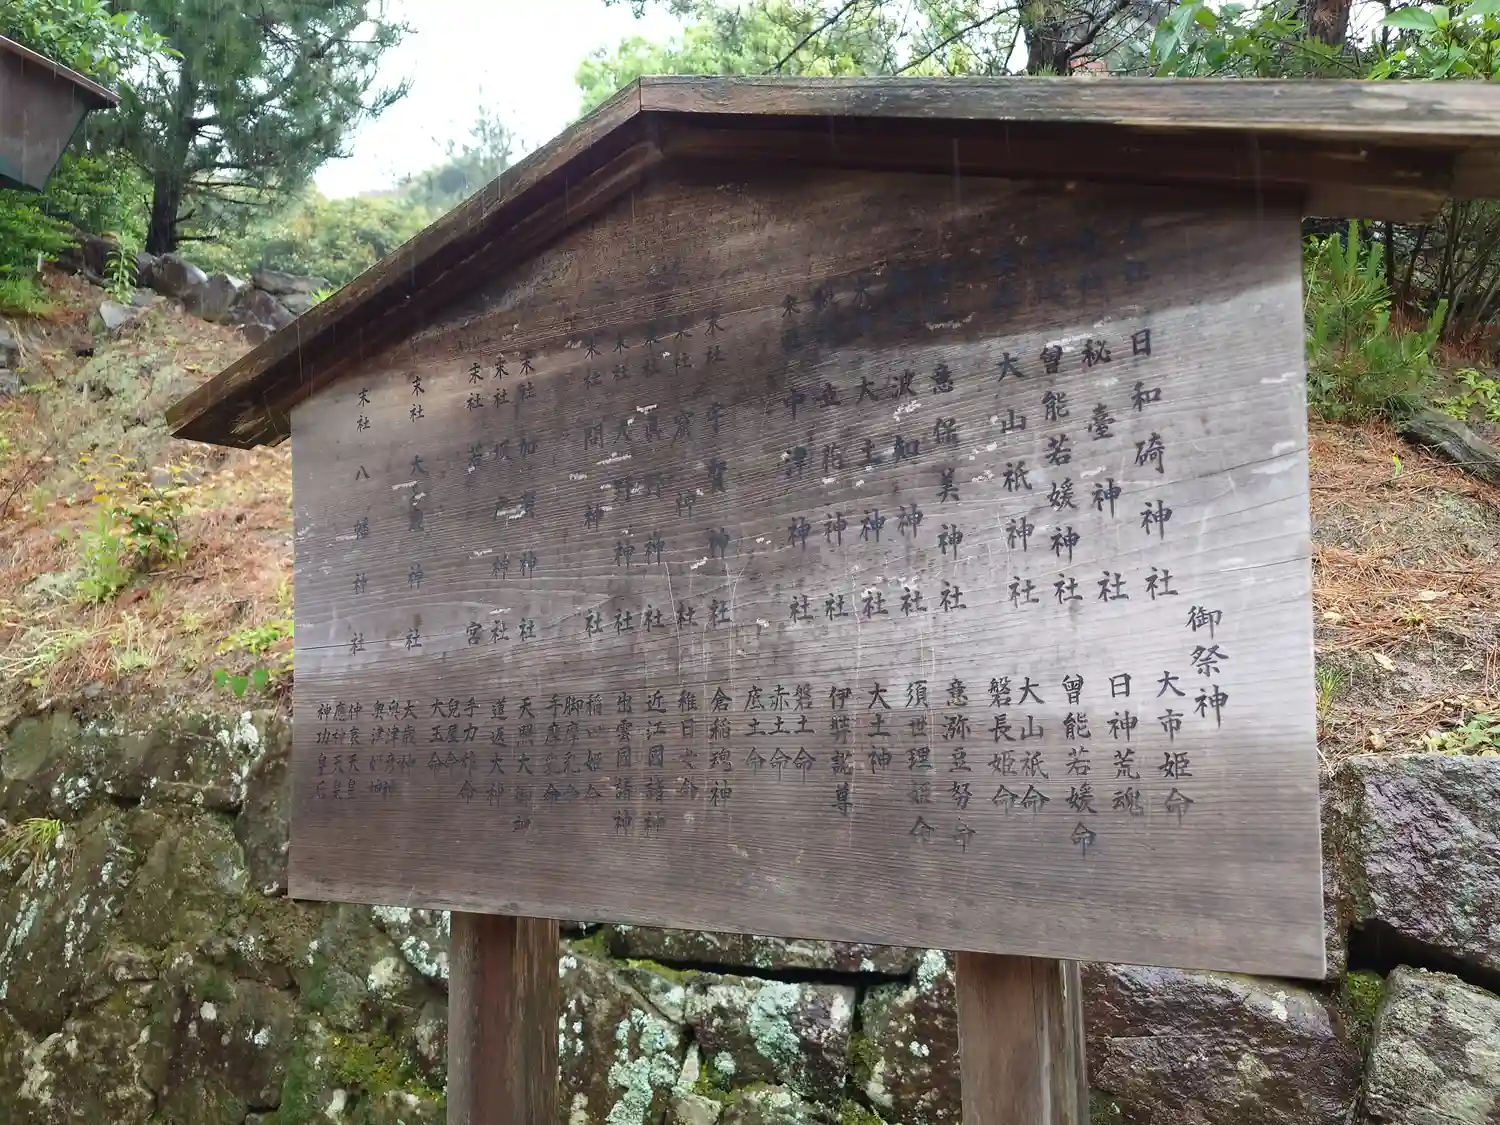 御祭神
日和碕神社 大市姫命
秘臺神社 日神荒魂
曾能若媛神社 曾能若媛命
大山祇神社 大山祇命 磐長姫命
意保美神社 意弥豆努命
波知神社 須世理姫命
大土神社 大土神
立花神社 伊弉諾尊
末社 中津神社 磐土命 赤土命 底土命
末社 宇賀神社 倉稲魂神
末社 神社 稚日女命
末社 眞野神社 近江國諸神
末社 大野神社 出雲國諸神
末社 間神社 稲田姫命 脚摩乳命 手摩乳命
末社 神社 天照大御神
末社 坂 神社 道返大神
末社 若宮 手力雄命 兒屋命 大玉命
末社 大歳神社 大歳神 奥津彦神 奥津姫神
末社 八幡神社 仲哀天皇 應神天皇 神功皇后